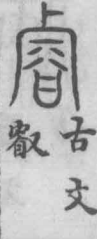 睿
古文
叡